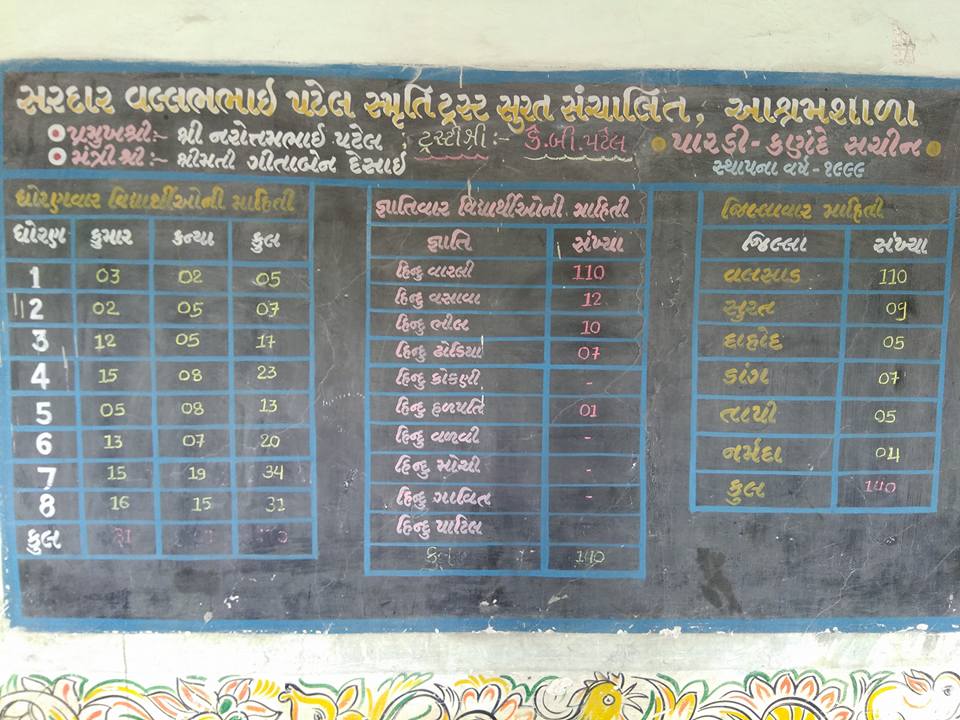 સરદાર વલ્લભભાઇ પટેલ સ્મૃતિટ્રસ્ટ સુરત સંચાલિત, આશ્રમશાળા
પ્રમુખશ્રી:- શ્રી નરોત્તમભાઇ પટેલ, ટ્રસ્ટીશ્રી:- કે.બી.પટેલ પારડી-કણદે સચીન
મંત્રીશ્રી:- શ્રીમતી ગીતાબેન દેસાઇ સ્થાપના વર્ષ-૧૯૯૯
ધોરણવાર વિદ્યાર્થીઓની માહિતી
ધોરણ કુમાર કન્યા કુલ
1 03 02 05
2 02 05 07
3 12 05 17
4 15 08 23
5 05 08 13
6 13 07 20
7 15 19 34
8 16 15 31
કુલ 81
જ્ઞાતિવાર વિદ્યાર્થીઓની માહિતી
જ્ઞાતિ સંખ્યા
હિન્દુ વારલી 110
હિન્દુ વસાવા 12
હિન્દુ ભીલ 10
હિન્દુ ઢોડિયા 07
હિન્દુ કોકણી -
હિન્દુ હળપતિ 01
હિન્દુ વળવી -
હિન્દુ મોચી -
હિન્દુ ગાવિત -
હિન્દુ પાટિલ
કુલ 140
જિલ્લાવાર માહિતી
જિલ્લા સંખ્યા
વલસાડ 110
સુરત 09
દાહોદ 05
ડાંગ 07
તાપી 05
નર્મદા 04
કુલ 140